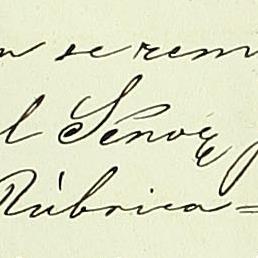 n se rem
l Señor
Rúbrica =